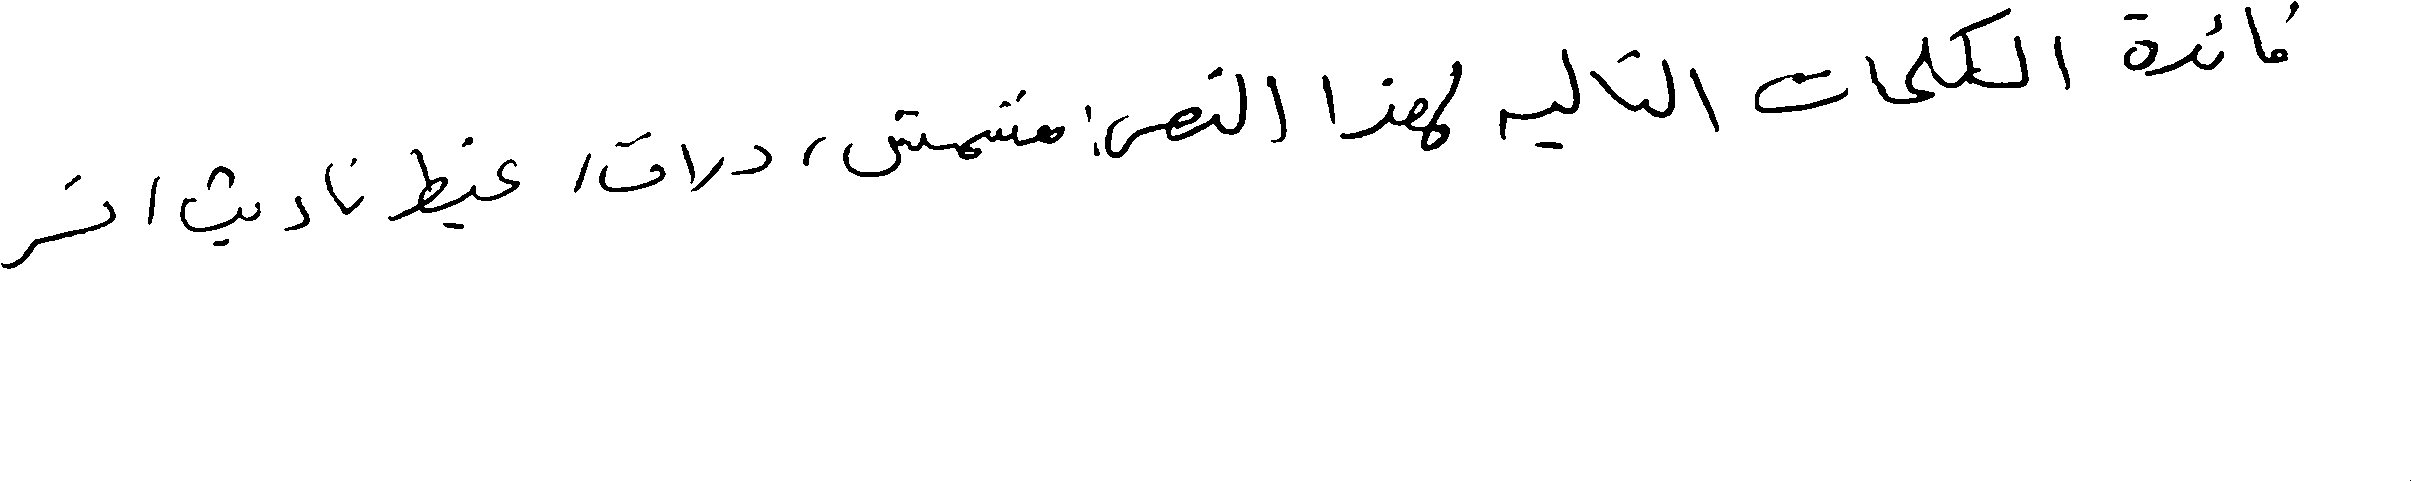 فائدة الكلمات التاليه لهذا النص: مشمش، دراق، غيظ نادیث، اسر